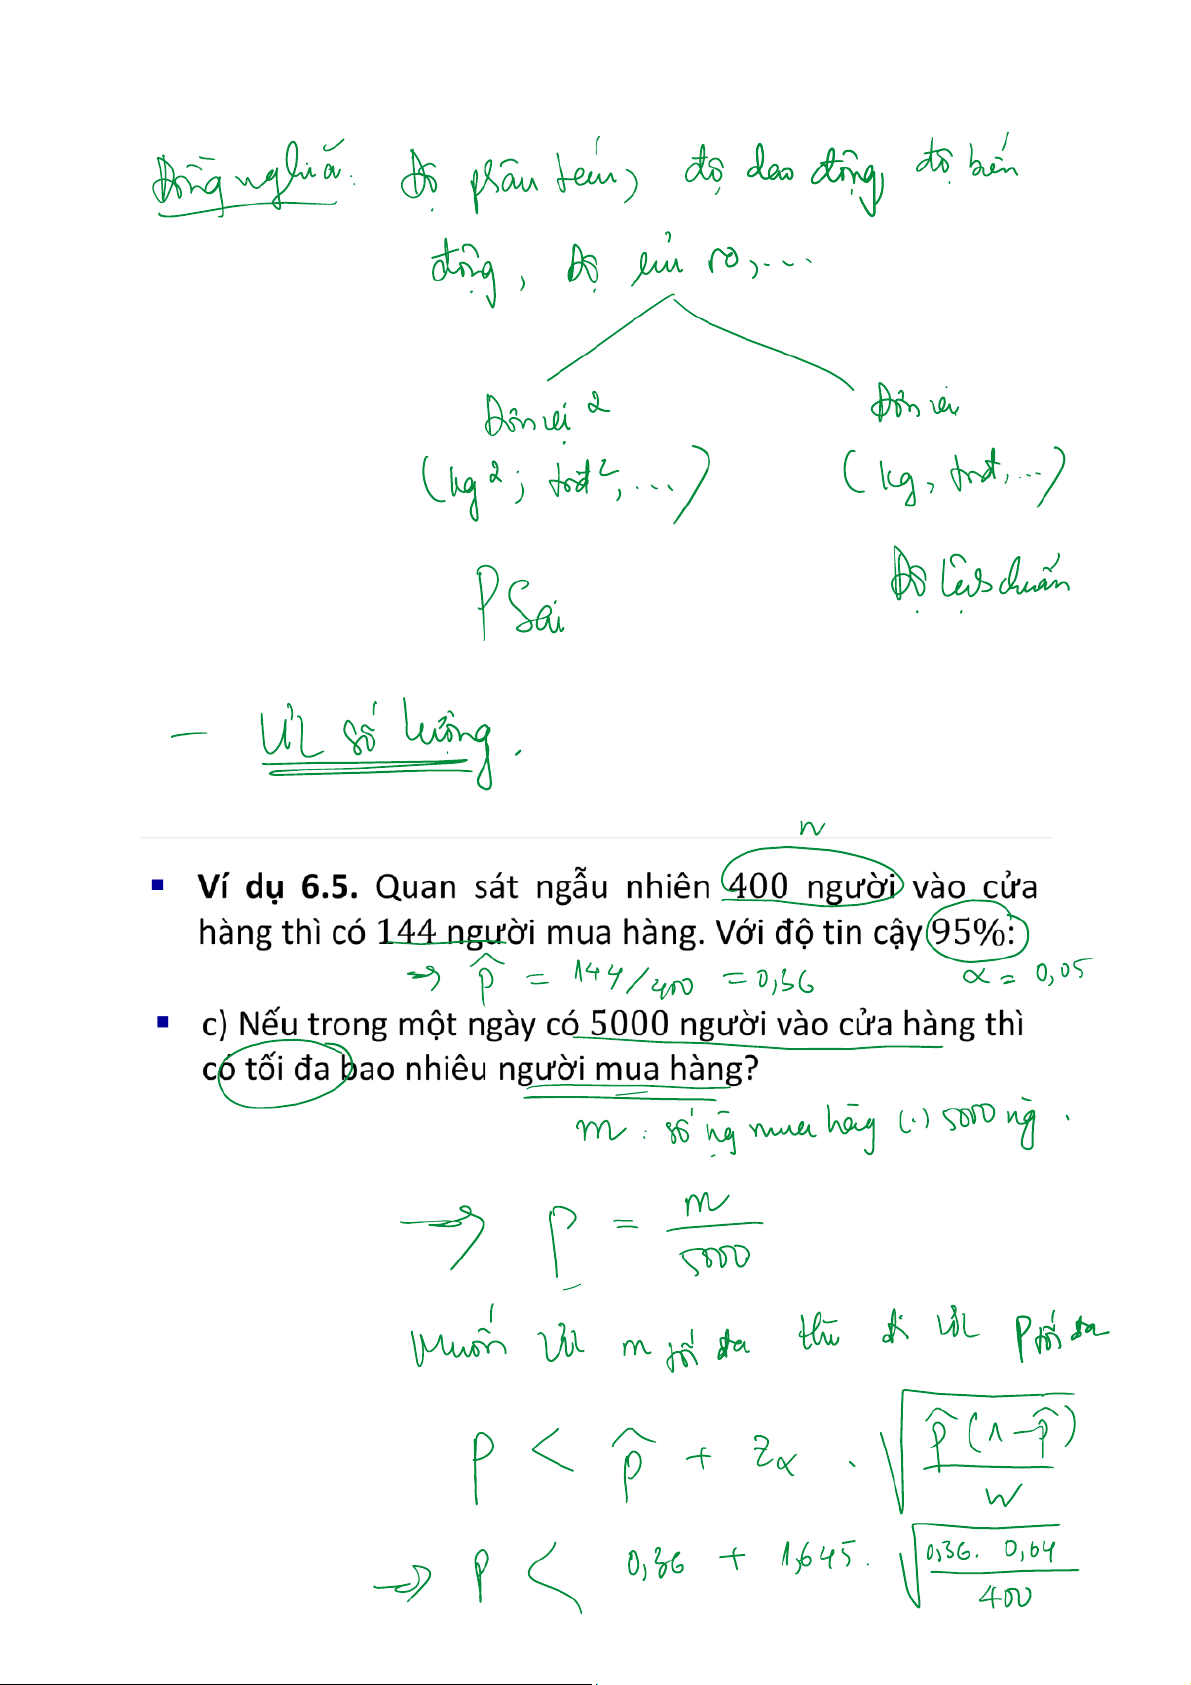 Đồng nghĩa: Độ phân tán, độ dao động, độ biến
động, Độ rủi ro,...
Đơn vị² Đơn vị
(kg²; trđ²,...) (kg, trđ,...)
P Sai Độ lệch chuẩn
- ƯL số lượng.
n
▪ Ví dụ 6.5. Quan sát ngẫu nhiên 400 người vào cửa
hàng thì có 144 người mua hàng. Với độ tin cậy 95%:
⇒ p̂ = 144/400 = 0,36 α = 0,05
▪ c) Nếu trong một ngày có 5000 người vào cửa hàng thì
có tối đa bao nhiêu người mua hàng?
m: số ng mua hàng (.) 5000 ng.
→ P = m/5000
Muốn ƯL m tối đa thì đi ƯL P tối đa
P < p̂ + zα . √(p̂(1-p̂)/n)
⇒ P < 0,36 + 1,645. √(0,36. 0,64/400)